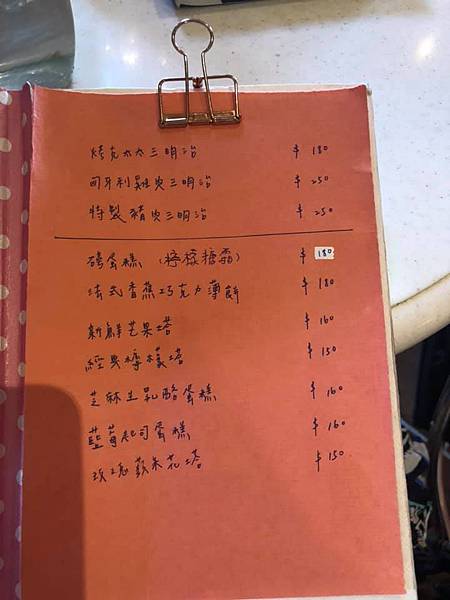 烤克太太三明治 $ 180
匈牙利雞肉三明治 $ 250
特製豬肉三明治 $ 250
磅蛋糕 (檸檬糖霜) $ 180
法式香蕉巧克力薄餅 $ 180
新鮮芒果塔 $ 160
經典檸檬塔 $ 150
芝麻生乳酪蛋糕 $ 160
藍莓起司蛋糕 $ 160
玫瑰蘋果花塔 $ 150